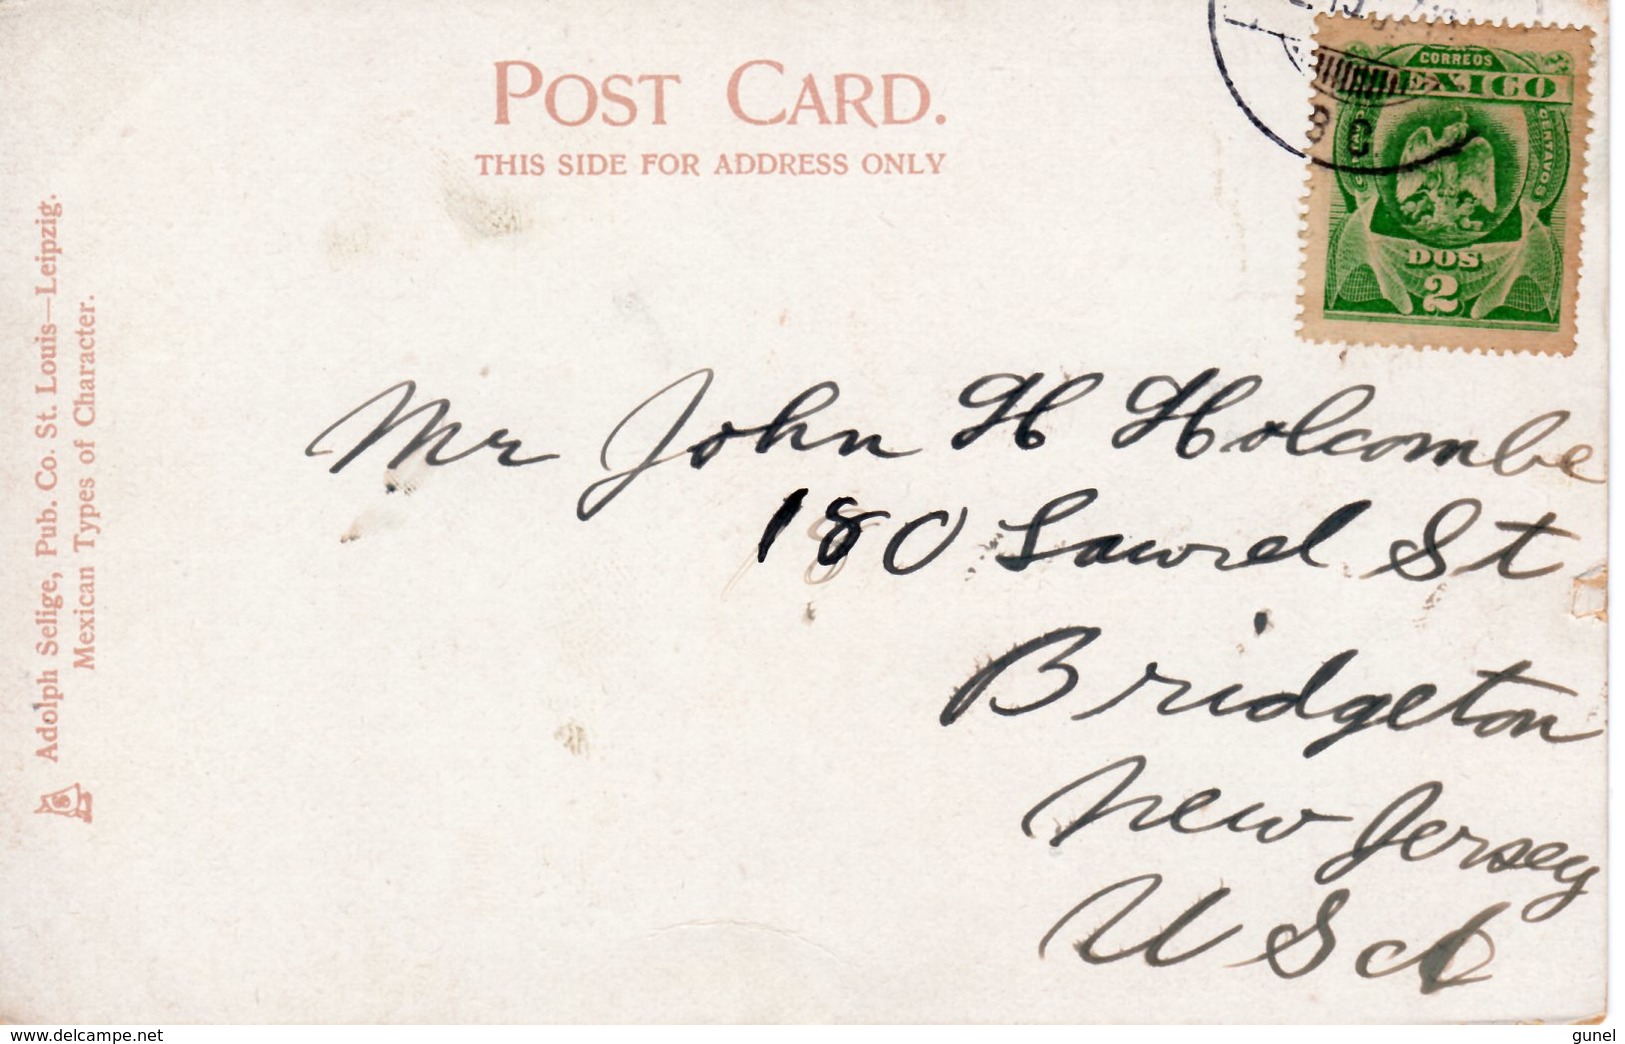 POST CARD.
THIS SIDE FOR ADDRESS ONLY
CORREOS
MEXICO
CENTAVOS
DOS
2
B C
Adolph Selige, Pub. Co. St. Louis—Leipzig.
Mexican Types of Character.
Mr John H Holcombe
180 Laurel St
Bridgeton
New Jersey
U S A
www.delcampe.net
gunel